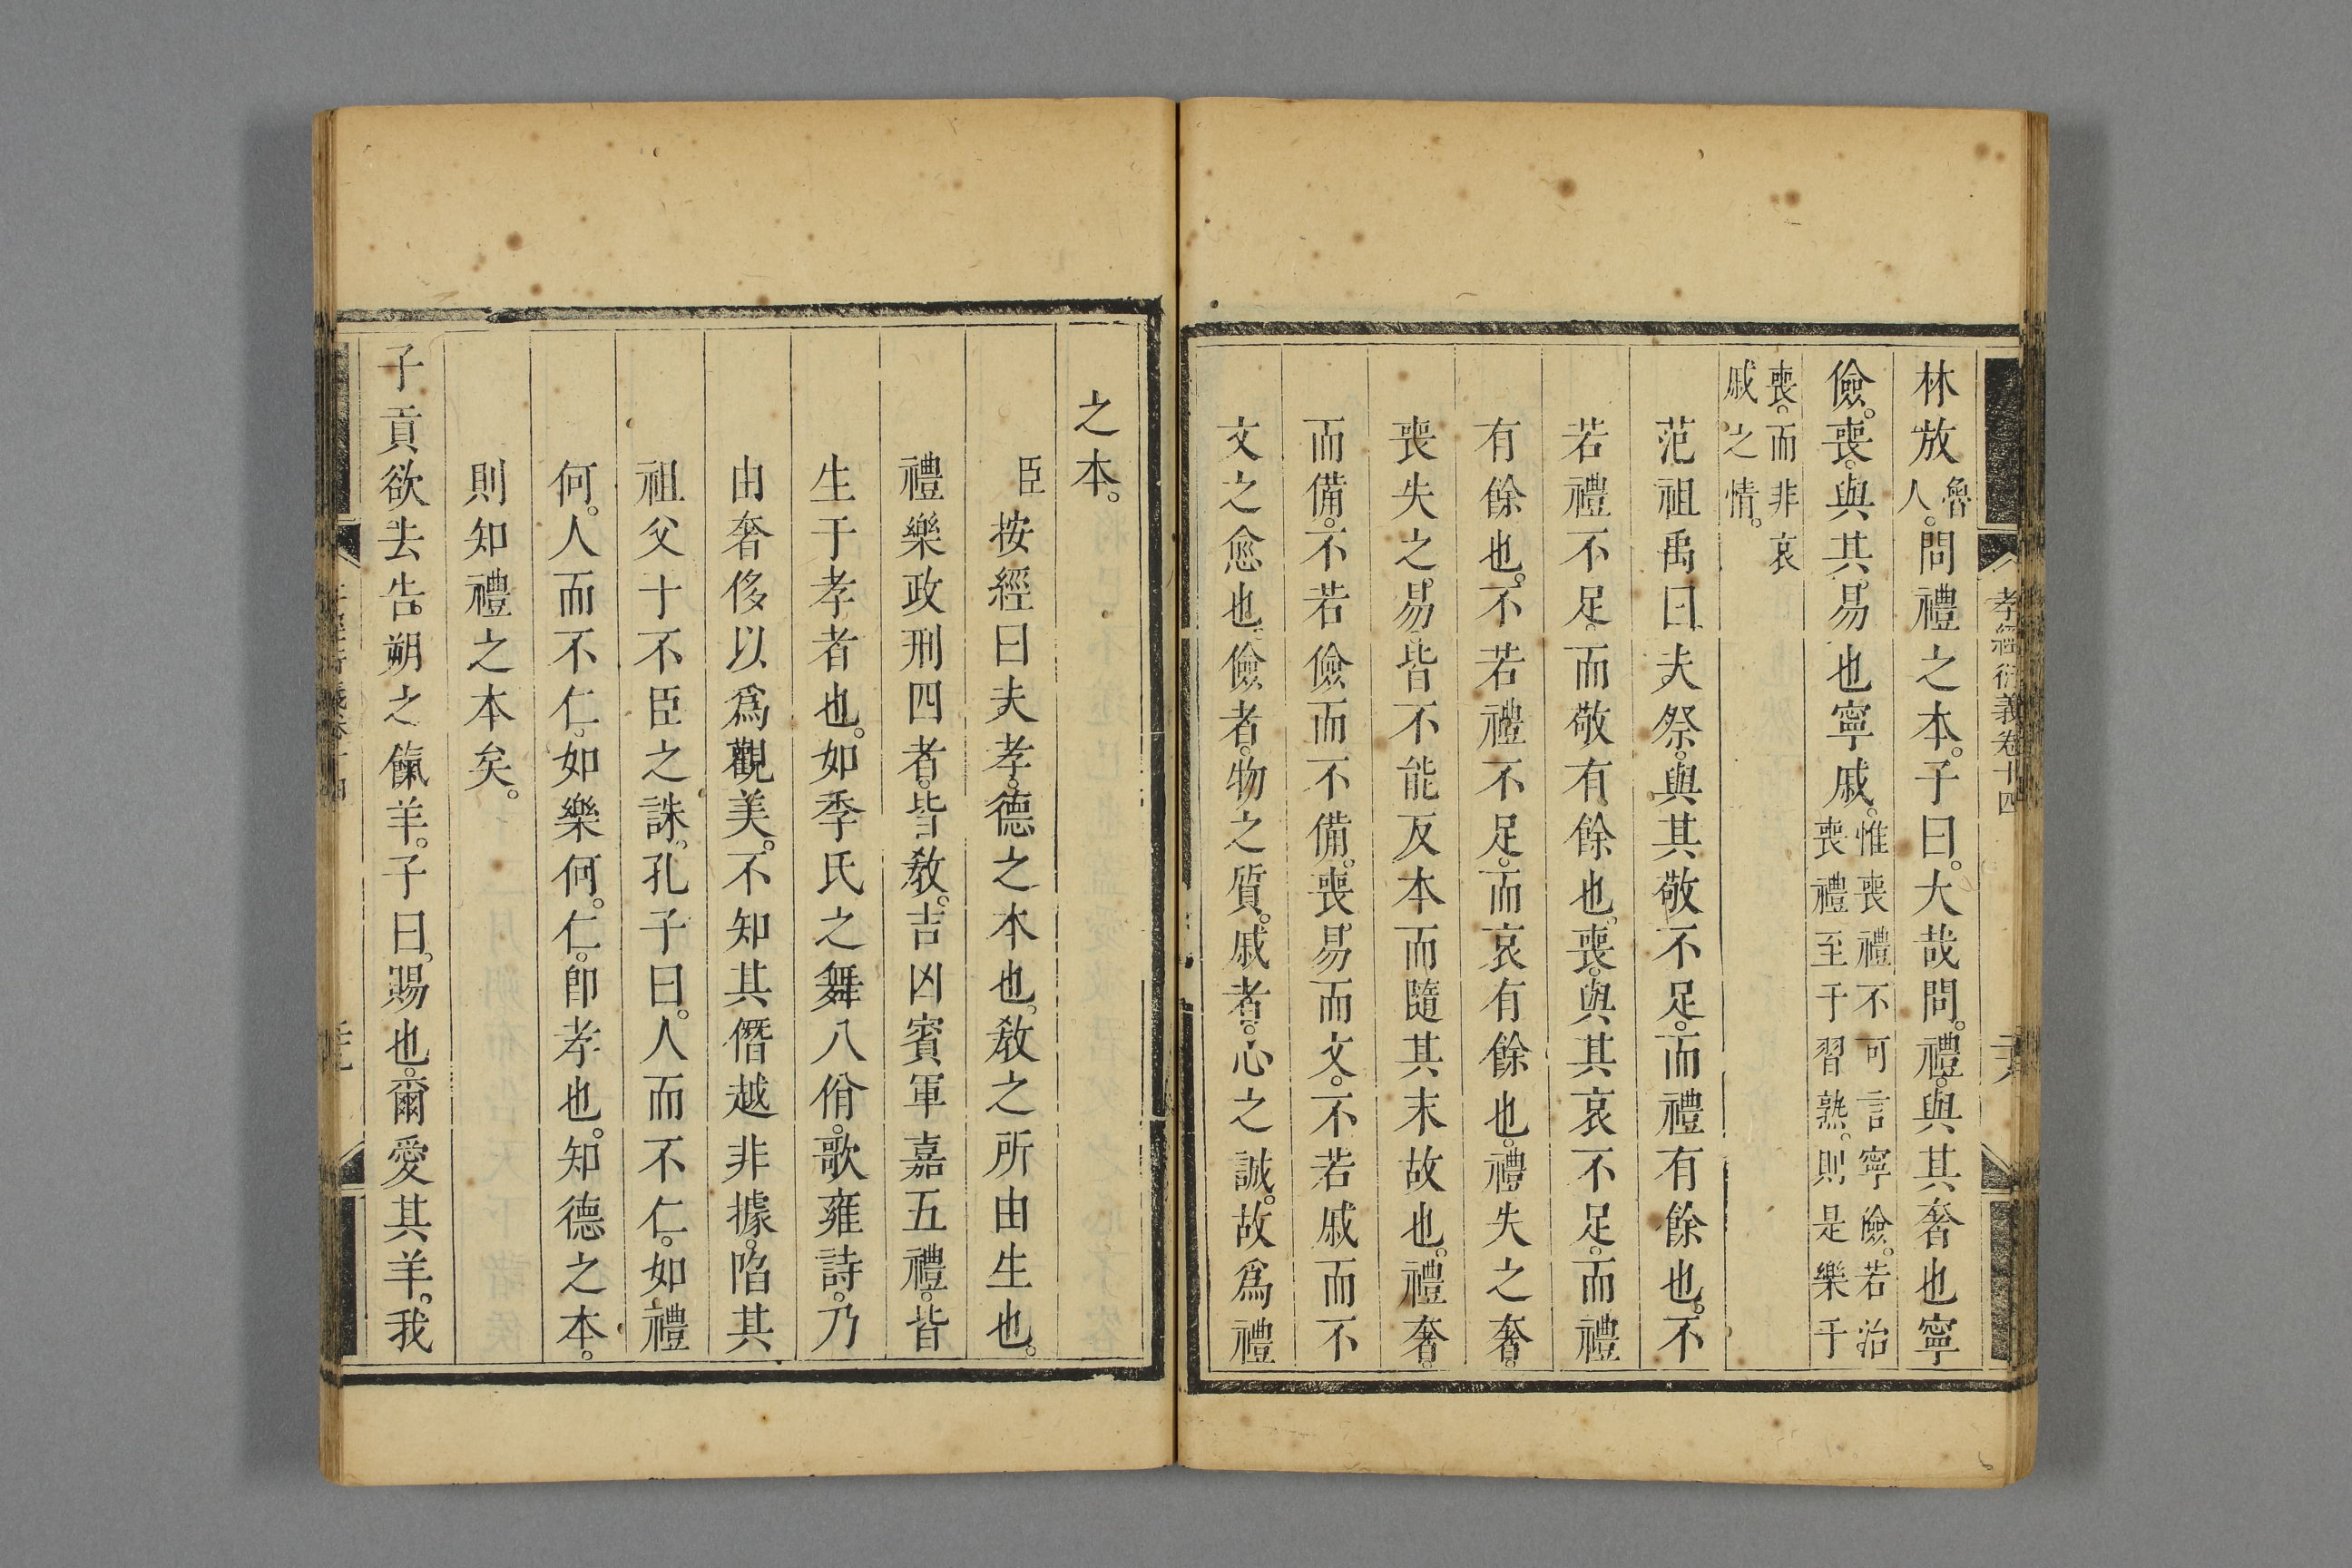 孝經衍義卷十四
林放魯人。問禮之本。子曰。大哉問。禮。與其奢也寧
儉。喪。與其。易也寧戚。惟喪禮不可言寧儉。若治喪禮至于習熟。則是樂于
喪。而非哀戚之情。
范祖禹曰。夫祭。與其敬不足。而禮有餘也。不
若禮不足。而敬有餘也。喪。與其哀不足。而禮
有餘也。不若禮不足。而哀有餘也。禮失之奢。
喪失之。易。皆不能反本而隨其末故也。禮奢。
而備。不若儉而不備。喪。易而文。不若戚而不
文之愈也。儉者。物之質。戚者。心之誠。故爲禮
之本。
臣按經曰夫孝。德之本也。敎之所由生也。
禮樂政刑四者。皆敎。吉凶賓軍嘉五禮。皆
生于孝者也。如季氏之舞八佾。歌雍詩。乃
由奢侈以爲觀美。不知其僭越非據。陷其
祖父于不臣之誅。孔子曰。人而不仁。如禮
何。人而不仁。如樂何。仁。卽孝也。知德之本。
則知禮之本矣。
子貢欲去告。朔之餼羊。子曰。賜也。爾愛其羊。我